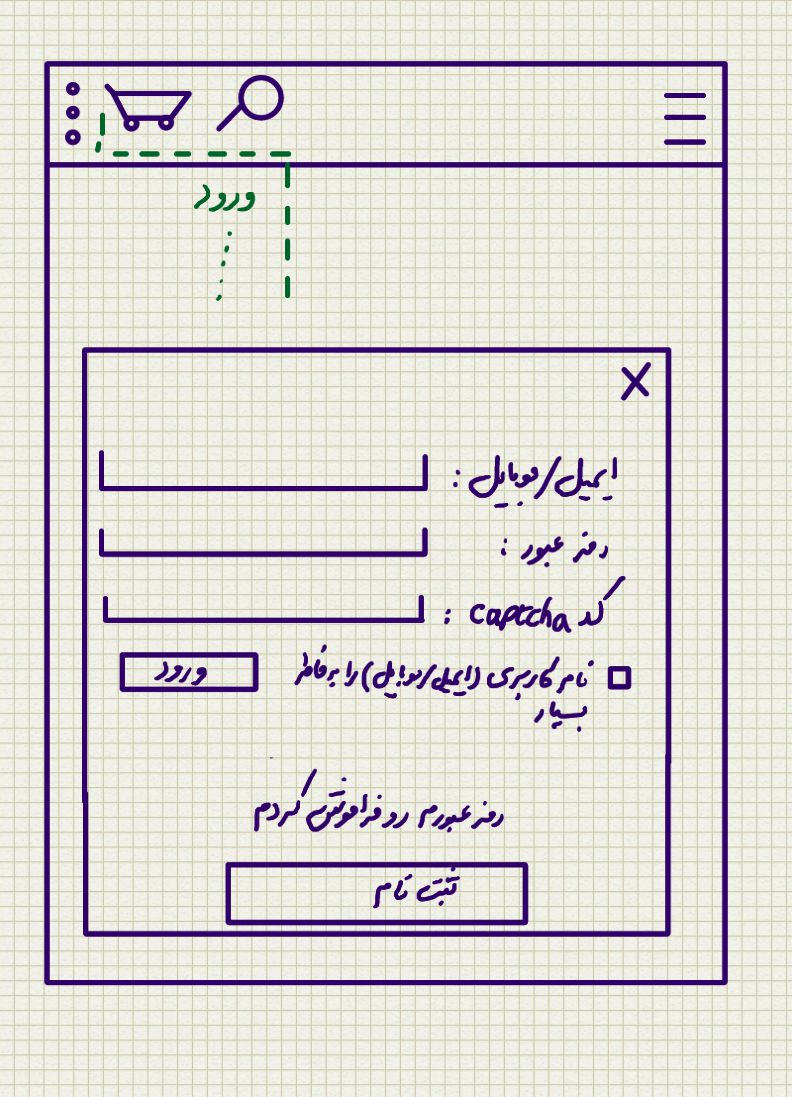 ورود
X
ایمیل/موبایل :
رمز عبور :
کد captcha :
نام کاربری (ایمیل/موبایل) را بخاطر
بسپار
ورود
رمز عبورم رو فراموش کردم
ثبت نام